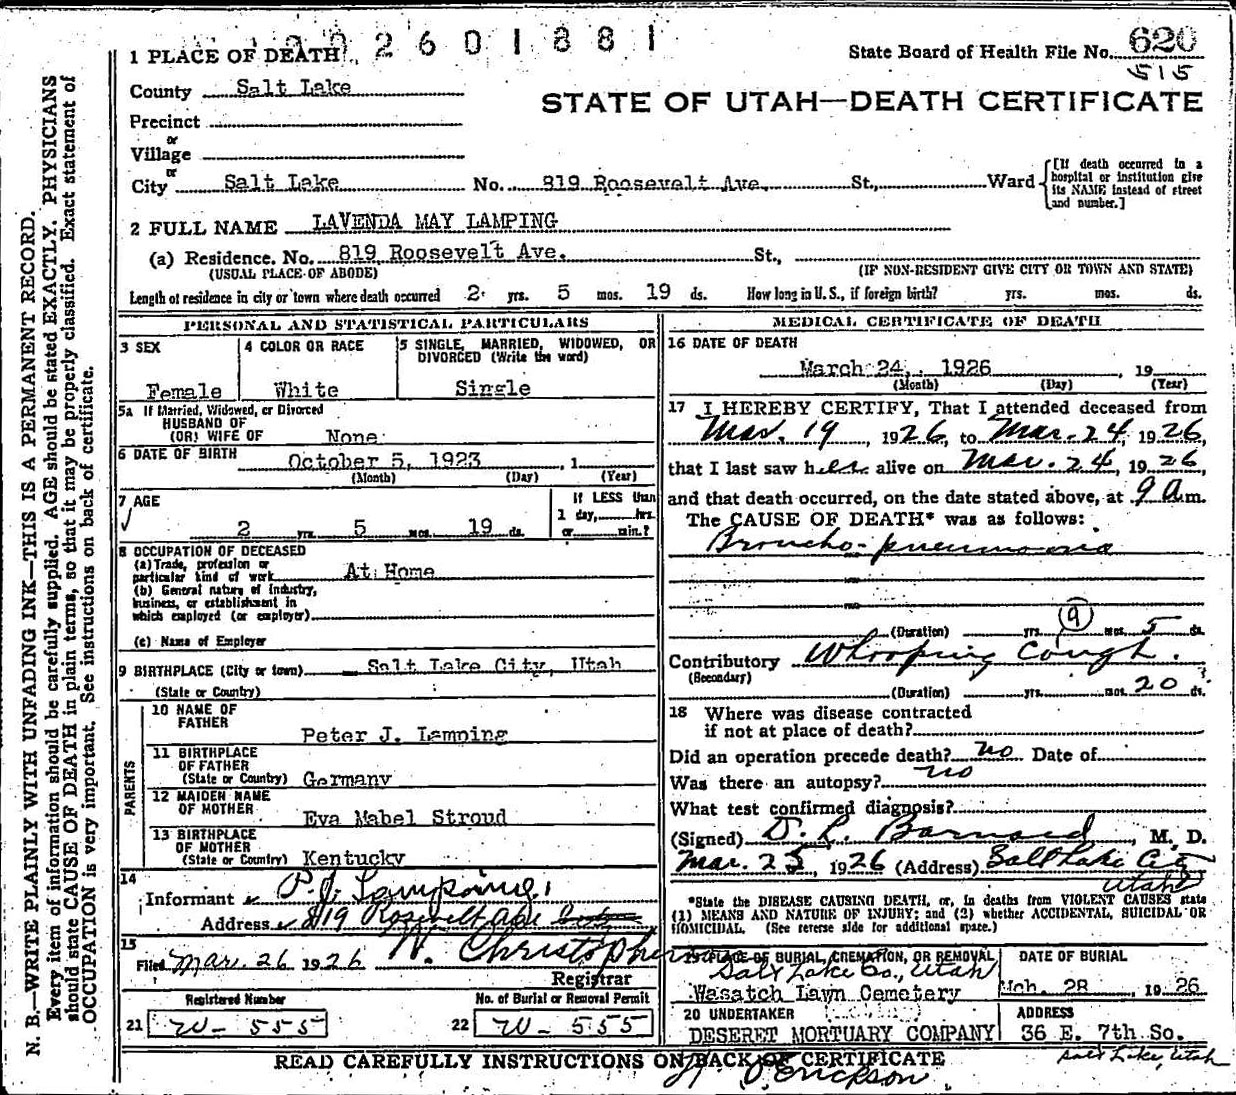 2 6 0 1 8 8 1
1 PLACE OF DEATH
State Board of Health File No. 620
515
County Salt Lake
STATE OF UTAH—DEATH CERTIFICATE
Precinct
or
Village
or
City Salt Lake No. 819 Roosevelt Ave. St., Ward
[If death occurred in a
hospital or institution give
its NAME instead of street
and number.]
2 FULL NAME LAVENDA MAY LAMPING
(a) Residence. No. 819 Roosevelt Ave. St.,
(USUAL PLACE OF ABODE) (IF NON-RESIDENT GIVE CITY OR TOWN AND STATE)
Length of residence in city or town where death occurred 2 yrs. 5 mos. 19 ds. How long in U. S., if foreign birth? yrs. mos. ds.
PERSONAL AND STATISTICAL PARTICULARS
3 SEX
Female
4 COLOR OR RACE
White
5 SINGLE, MARRIED, WIDOWED, OR
DIVORCED (Write the word)
Single
5a If Married, Widowed, or Divorced
HUSBAND OF
(OR) WIFE OF None
6 DATE OF BIRTH October 5, 1923, 1
(Month) (Day) (Year)
7 AGE
2 yrs. 5 mos. 19 ds.
If LESS than
1 day, hrs.
or min.?
8 OCCUPATION OF DECEASED
(a) Trade, profession or
particular kind of work At Home
(b) General nature of industry,
business, or establishment in
which employed (or employer)
(c) Name of Employer
9 BIRTHPLACE (City or town) Salt Lake City, Utah
(State or Country)
PARENTS
10 NAME OF
FATHER Peter J. Lamping
11 BIRTHPLACE
OF FATHER
(State or Country) Germany
12 MAIDEN NAME
OF MOTHER Eva Mabel Stroud
13 BIRTHPLACE
OF MOTHER
(State or Country) Kentucky
14
Informant P. J. Lamping
Address 819 Rosevelt Ave
15
Filed Mar. 26 1926 W. Christopherson
Registrar
Registered Number No. of Burial or Removal Permit
21 W- 555 22 W- 555
MEDICAL CERTIFICATE OF DEATH
16 DATE OF DEATH
March 24, 1926, 19
(Month) (Day) (Year)
17 I HEREBY CERTIFY, That I attended deceased from
Mar. 19, 1926, to Mar. 24, 1926,
that I last saw her alive on Mar. 24, 1926,
and that death occurred, on the date stated above, at 9 a m.
The CAUSE OF DEATH* was as follows:
Broncho-pneumonia
9
(Duration) yrs. mos. 5 ds.
Contributory Whooping Cough.
(Secondary)
(Duration) yrs. mos. 20 ds.
18 Where was disease contracted
if not at place of death?
Did an operation precede death? no Date of
Was there an autopsy? no
What test confirmed diagnosis?
(Signed) D. L. Barnard, M. D.
Mar. 25, 1926 (Address) Salt Lake City
Utah
*State the DISEASE CAUSING DEATH, or, in deaths from VIOLENT CAUSES state
(1) MEANS AND NATURE OF INJURY; and (2) whether ACCIDENTAL, SUICIDAL OR
HOMICIDAL. (See reverse side for additional space.)
19 PLACE OF BURIAL, CREMATION, OR REMOVAL
Salt Lake Co., Utah
Wasatch Lawn Cemetery
DATE OF BURIAL
Mch. 28, 1926
20 UNDERTAKER
DESERET MORTUARY COMPANY
ADDRESS
36 E. 7th So.
Salt Lake, Utah
READ CAREFULLY INSTRUCTIONS ON BACK OF CERTIFICATE
Erickson
N. B.—WRITE PLAINLY WITH UNFADING INK—THIS IS A PERMANENT RECORD.
Every item of information should be carefully supplied. AGE should be stated EXACTLY. PHYSICIANS
should state CAUSE OF DEATH in plain terms, so that it may be properly classified. Exact statement of
OCCUPATION is very important. See instructions on back of certificate.